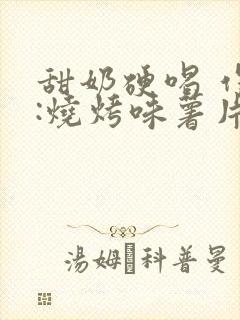 甜奶硬唱
:燒烤味薯片
湯姆·科普曼